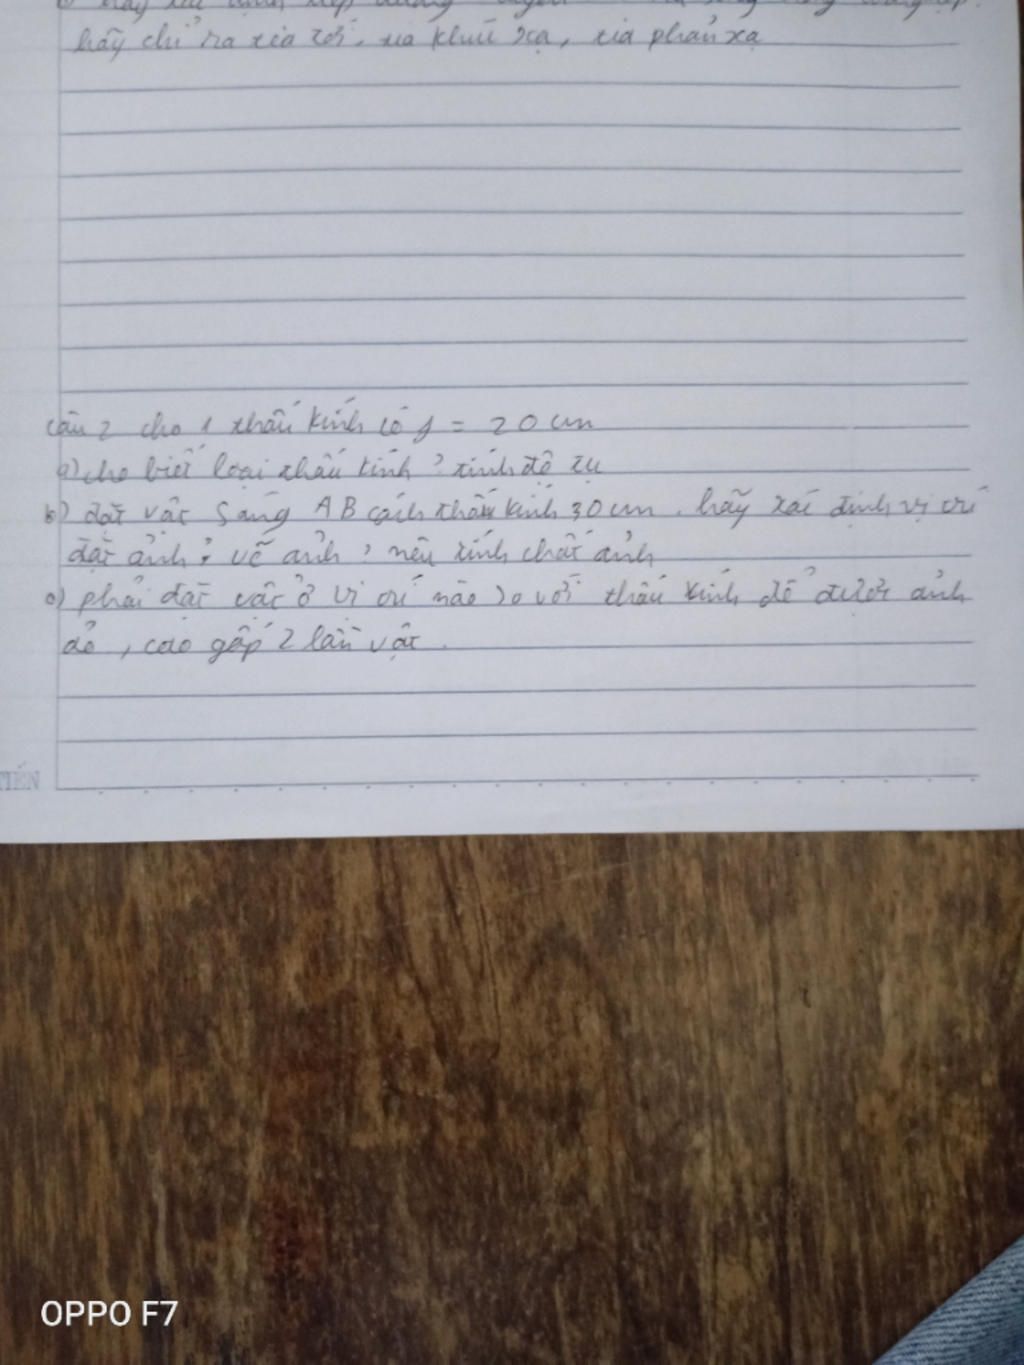 hãy chỉ ra tia tới, tia khúc xạ, tia phản xạ
câu 2 cho 1 thấu kính có f = 20 cm
a) cho biết loại thấu kính? tính độ tụ
b) đặt vật sáng AB cách thấu kính 30 cm. hãy xác định vị trí
đặt ảnh? vẽ ảnh, nêu tính chất ảnh
c) phải đặt vật ở vị trí nào so với thấu kính để được ảnh
ảo, cao gấp 2 lần vật.
TIẾN
OPPO F7